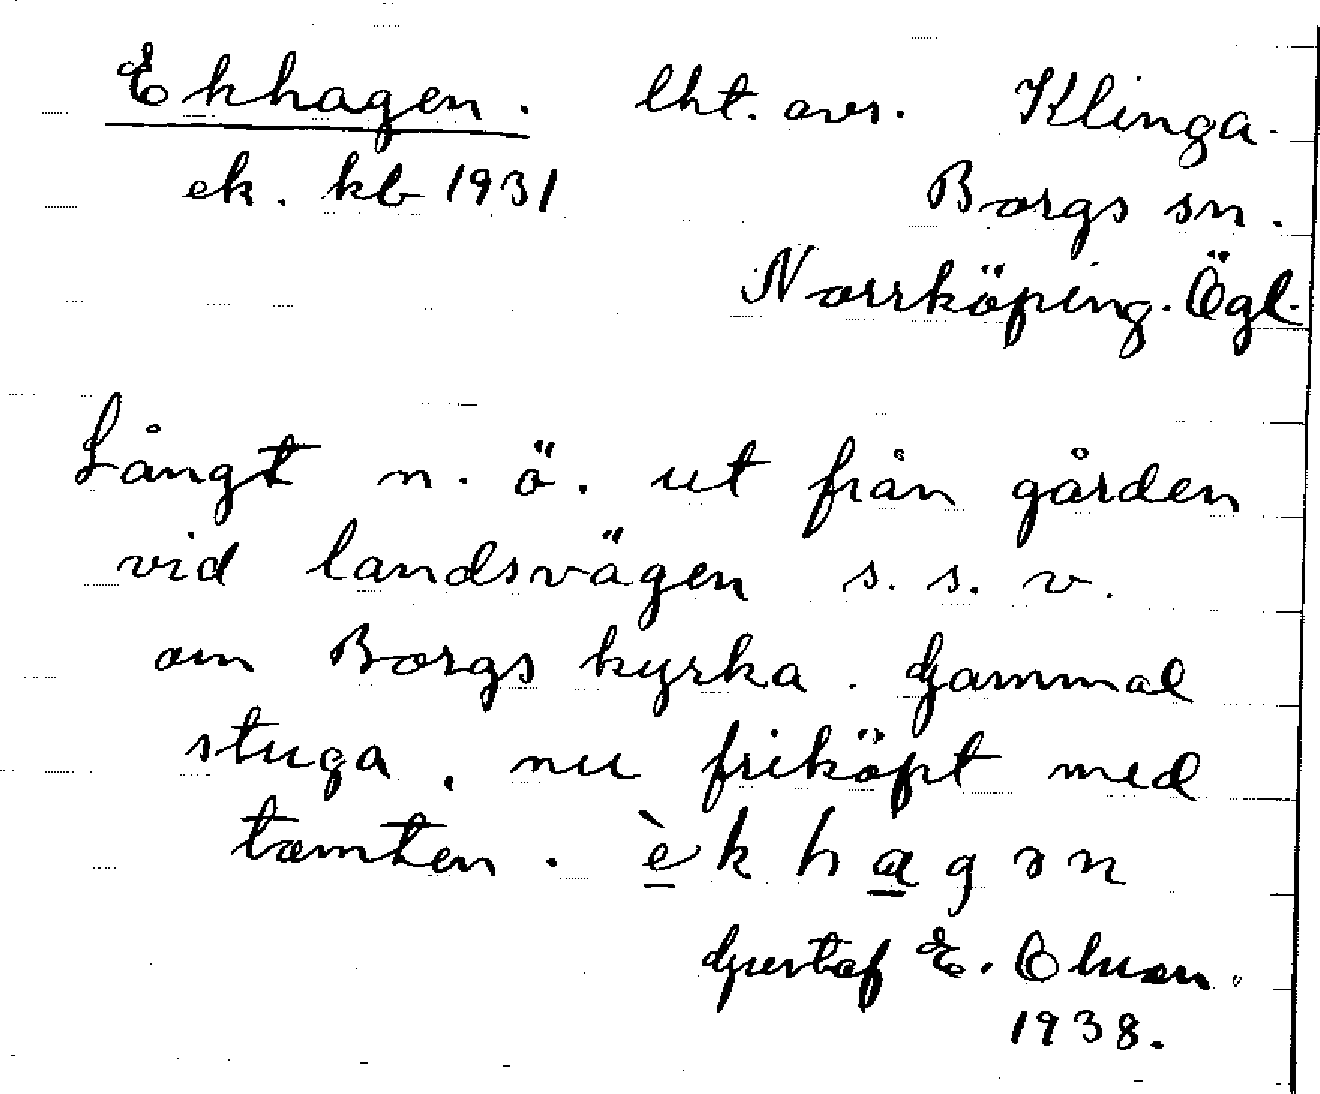 Ekhagen. lht. avs. Klinga.
ek. kb 1931 Borgs sn.
Norrköping. Ögl.
Långt n. ö. ut från gården
vid landsvägen s. s. v.
om Borgs kyrka. Gammal
stuga, nu friköpt med
tomten. èkhagən
Gustaf E. Olsson.
1938.